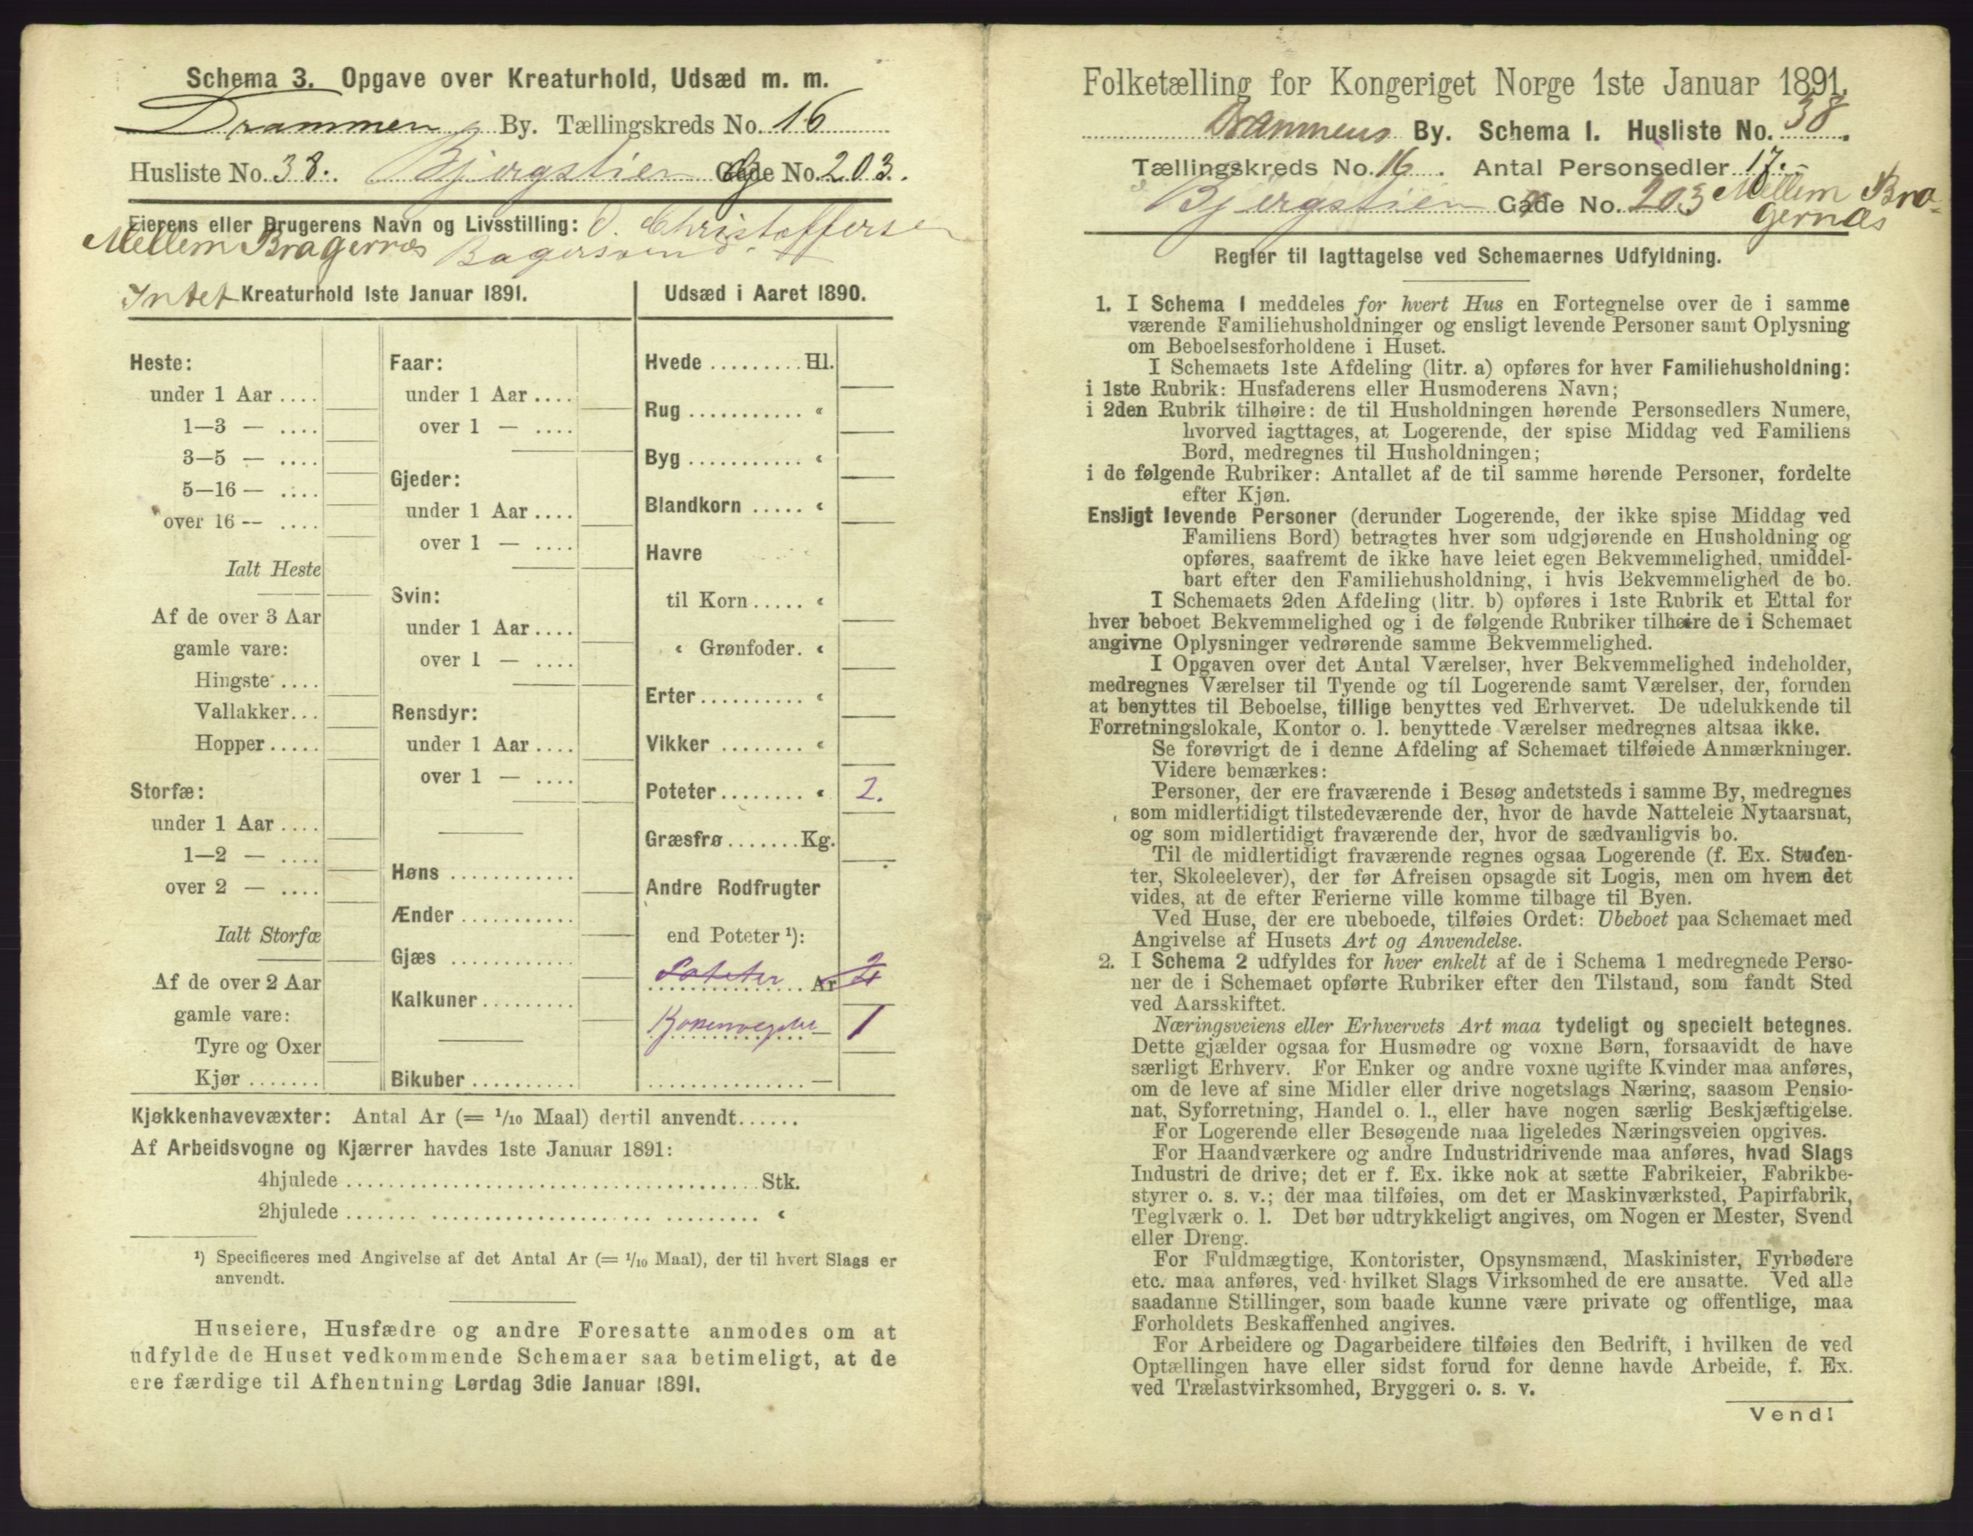 Schema 3. Opgave over Kreaturhold, Udsæd m. m.
Drammen By. Tællingskreds No. 16
Husliste No. 38. Bjergstien Gade No. 203.
Eierens eller Brugerens Navn og Livsstilling: O. Christoffersen
Mellem Bragernæs Bagersvend.
Intet Kreaturhold 1ste Januar 1891.
Heste:
under 1 Aar ....
1—3 — ....
3—5 — ....
5—16 — ....
over 16 — ....
Ialt Heste
Af de over 3 Aar
gamle vare:
Hingste ....
Vallakker...
Hopper.....
Storfæ:
under 1 Aar ....
1—2 — ....
over 2 — ....
Ialt Storfæ
Af de over 2 Aar
gamle vare:
Tyre og Oxer
Kjør .......
Faar:
under 1 Aar ....
over 1 — ....
Gjeder:
under 1 Aar ....
over 1 — ....
Svin:
under 1 Aar....
over 1 — ....
Rensdyr:
under 1 Aar ....
over 1 — ....
Høns ............
Ænder ...........
Gjæs ............
Kalkuner.........
Bikuber ..........
Udsæd i Aaret 1890.
Hvede ......... Hl.
Rug ........... "
Byg ........... "
Blandkorn ..... "
Havre
til Korn ..... "
" Grønfoder. "
Erter.......... "
Vikker ........ "
Poteter ........ " 2.
Græsfrø ....... Kg.
Andre Rodfrugter
end Poteter ¹):
Poteter Ar 2
— 1
.............. —
Kjøkkenhavevæxter: Antal Ar (= 1/10 Maal) dertil anvendt......
Af Arbeidsvogne og Kjærrer havdes 1ste Januar 1891:
4hjulede ..................................... Stk.
2hjulede ..................................... "
¹) Specificeres med Angivelse af det Antal Ar (= 1/10 Maal), der til hvert Slags er
anvendt.
Huseiere, Husfædre og andre Foresatte anmodes om at
udfylde de Huset vedkommende Schemaer saa betimeligt, at de
ere færdige til Afhentning Lørdag 3die Januar 1891.
Folketælling for Kongeriget Norge 1ste Januar 1891.
Drammens By. Schema 1. Husliste No. 38.
Tællingskreds No. 16. Antal Personsedler 17.
Bjergstien Gade No. 203 Mellem Bra-
gernæs
Regler til Iagttagelse ved Schemaernes Udfyldning.
1. I Schema 1 meddeles for hvert Hus en Fortegnelse over de i samme
værende Familiehusholdninger og ensligt levende Personer samt Oplysning
om Beboelsesforholdene i Huset.
I Schemaets 1ste Afdeling (litr. a) opføres for hver Familiehusholdning:
i 1ste Rubrik: Husfaderens eller Husmoderens Navn;
i 2den Rubrik tilhøire: de til Husholdningen hørende Personsedlers Numere,
hvorved iagttages, at Logerende, der spise Middag ved Familiens
Bord, medregnes til Husholdningen;
i de følgende Rubriker: Antallet af de til samme hørende Personer, fordelte
efter Kjøn.
Ensligt levende Personer (derunder Logerende, der ikke spise Middag ved
Familiens Bord) betragtes hver som udgjørende en Husholdning og
opføres, saafremt de ikke have leiet egen Bekvemmelighed, umiddel-
bart efter den Familiehusholdning, i hvis Bekvemmelighed de bo.
I Schemaets 2den Afdeling (litr. b) opføres i 1ste Rubrik et Ettal for
hver beboet Bekvemmelighed og i de følgende Rubriker tilhøire de i Schemaet
angivne Oplysninger vedrørende samme Bekvemmelighed.
I Opgaven over det Antal Værelser, hver Bekvemmelighed indeholder,
medregnes Værelser til Tyende og til Logerende samt Værelser, der, foruden
at benyttes til Beboelse, tillige benyttes ved Erhvervet. De udelukkende til
Forretningslokale, Kontor o. l. benyttede Værelser medregnes altsaa ikke.
Se forøvrigt de i denne Afdeling af Schemaet tilføiede Anmærkninger.
Videre bemærkes:
Personer, der ere fraværende i Besøg andetsteds i samme By, medregnes
som midlertidigt tilstedeværende der, hvor de havde Natteleie Nytaarsnat,
og som midlertidigt fraværende der, hvor de sædvanligvis bo.
Til de midlertidigt fraværende regnes ogsaa Logerende (f. Ex. Studen-
ter, Skoleelever), der før Afreisen opsagde sit Logis, men om hvem det
vides, at de efter Ferierne ville komme tilbage til Byen.
Ved Huse, der ere ubeboede, tilføies Ordet: Ubeboet paa Schemaet med
Angivelse af Husets Art og Anvendelse.
2. I Schema 2 udfyldes for hver enkelt af de i Schema 1 medregnede Perso-
ner de i Schemaet opførte Rubriker efter den Tilstand, som fandt Sted
ved Aarsskiftet.
Næringsveiens eller Erhvervets Art maa tydeligt og specielt betegnes.
Dette gjælder ogsaa for Husmødre og voxne Børn, forsaavidt de have
særligt Erhverv. For Enker og andre voxne ugifte Kvinder maa anføres,
om de leve af sine Midler eller drive nogetslags Næring, saasom Pensio-
nat, Syforretning, Handel o. l., eller have nogen særlig Beskjæftigelse.
For Logerende eller Besøgende maa ligeledes Næringsveien opgives.
For Haandværkere og andre Industridrivende maa anføres, hvad Slags
Industri de drive; det er f. Ex. ikke nok at sætte Fabrikeier, Fabrikbe-
styrer o. s. v.; der maa tilføies, om det er Maskinværksted, Papirfabrik,
Teglværk o. l. Det bør udtrykkeligt angives, om Nogen er Mester, Svend
eller Dreng.
For Fuldmægtige, Kontorister, Opsynsmænd, Maskinister, Fyrbødere
etc. maa anføres, ved hvilket Slags Virksomhed de ere ansatte. Ved alle
saadanne Stillinger, som baade kunne være private og offentlige, maa
Forholdets Beskaffenhed angives.
For Arbeidere og Dagarbeidere tilføies den Bedrift, i hvilken de ved
Optællingen have eller sidst forud for denne havde Arbeide, f. Ex.
ved Trælastvirksomhed, Bryggeri o. s. v.
Vend!